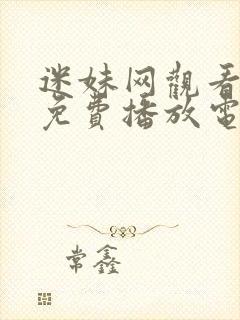 迷妹网觀看
免費播放電
常鑫